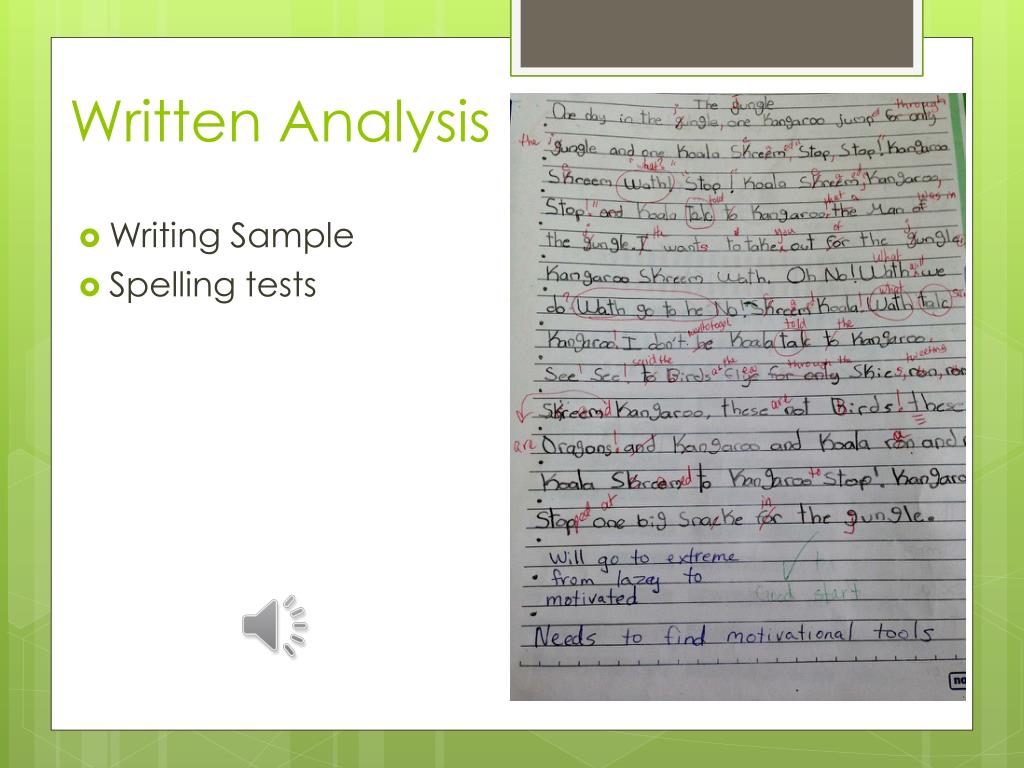 Written Analysis
Writing Sample
Spelling tests
The gungle
One day in the gungle, one Kangaroo jump for only through
the gungle and one Koala Skreem, Stop, Stop! Kangaroo
"what?"
Skreem Wath! "Stop! Koala Skreem, Kangaroo,
told that a was in
Stop!" and Koala talc to Kangaroo, the Man of
the you of
the gungle. I wants to take out for the gungle
What
Kangaroo Skreem Wath. Oh No! Wath we
what
do? Wath go to he No! Skreem Koala! Wath talc
told the
Kangaroo! I don't be Koala talc to Kangaroo.
said the at the through the tweeting
See! See! to Birds for only Skies, ron, ron
Skreem Kangaroo, these are not Birds! these
are Dragons! and Kangaroo and Koala ron and
Koala Skreemed to Kangaroo to Stop! Kangaroo
at in
Stopped one big Snacke for the gungle.
Will go to extreme
from lazey to
motivated
Good start
Needs to find motivational tools